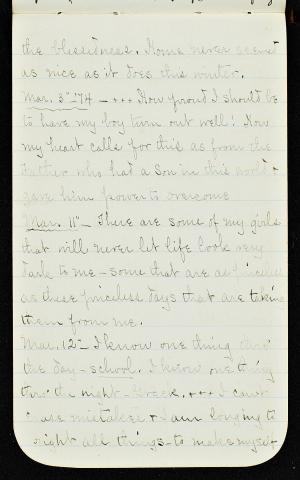 the blessedness. Home never seemed
as nice as it does this winter.
Mar. 3" 74 - +++ How proud I should be
to have my boy turn out well! How
my heart calls for this as from the
Father who had a Son in this world &
gave him power to overcome
Mar. 11" - There are some of my girls
that will never let life look very
dark to me - some that are as priceless
as these priceless days that are taking
them from me.
Mar. 12" - I know one thing thro'
the day - school. I know one thing
thro' the night - Greek. +++ I can't
mistakes & I am longing to
right all things - to make myself